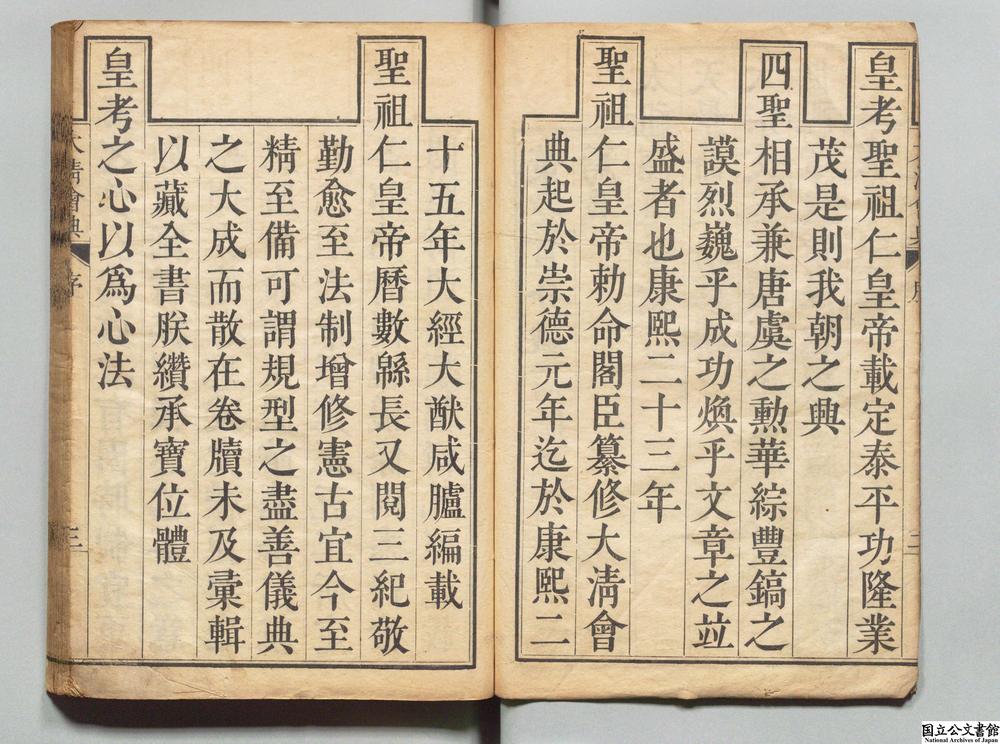 皇考聖祖仁皇帝載定泰平功隆業
茂是則我朝之興
四聖相承兼唐虞之勳華綜豐鎬之
謨烈巍乎成功煥乎文章之竝
盛者也康熙二十三年
聖祖仁皇帝勅命閣臣纂修大淸會
典起於崇德元年迄於康熙二
十五年大經大猷咸臚編載
聖祖仁皇帝曆數緜長又閱三紀敬
勤愈至法制增修憲古宜今至
精至備可謂規型之盡善儀典
之大成而散在卷牘未及彙輯
以藏全書朕纘承寶位體
皇考之心以爲心法
大清會典 序 三
国立公文書館
National Archives of Japan